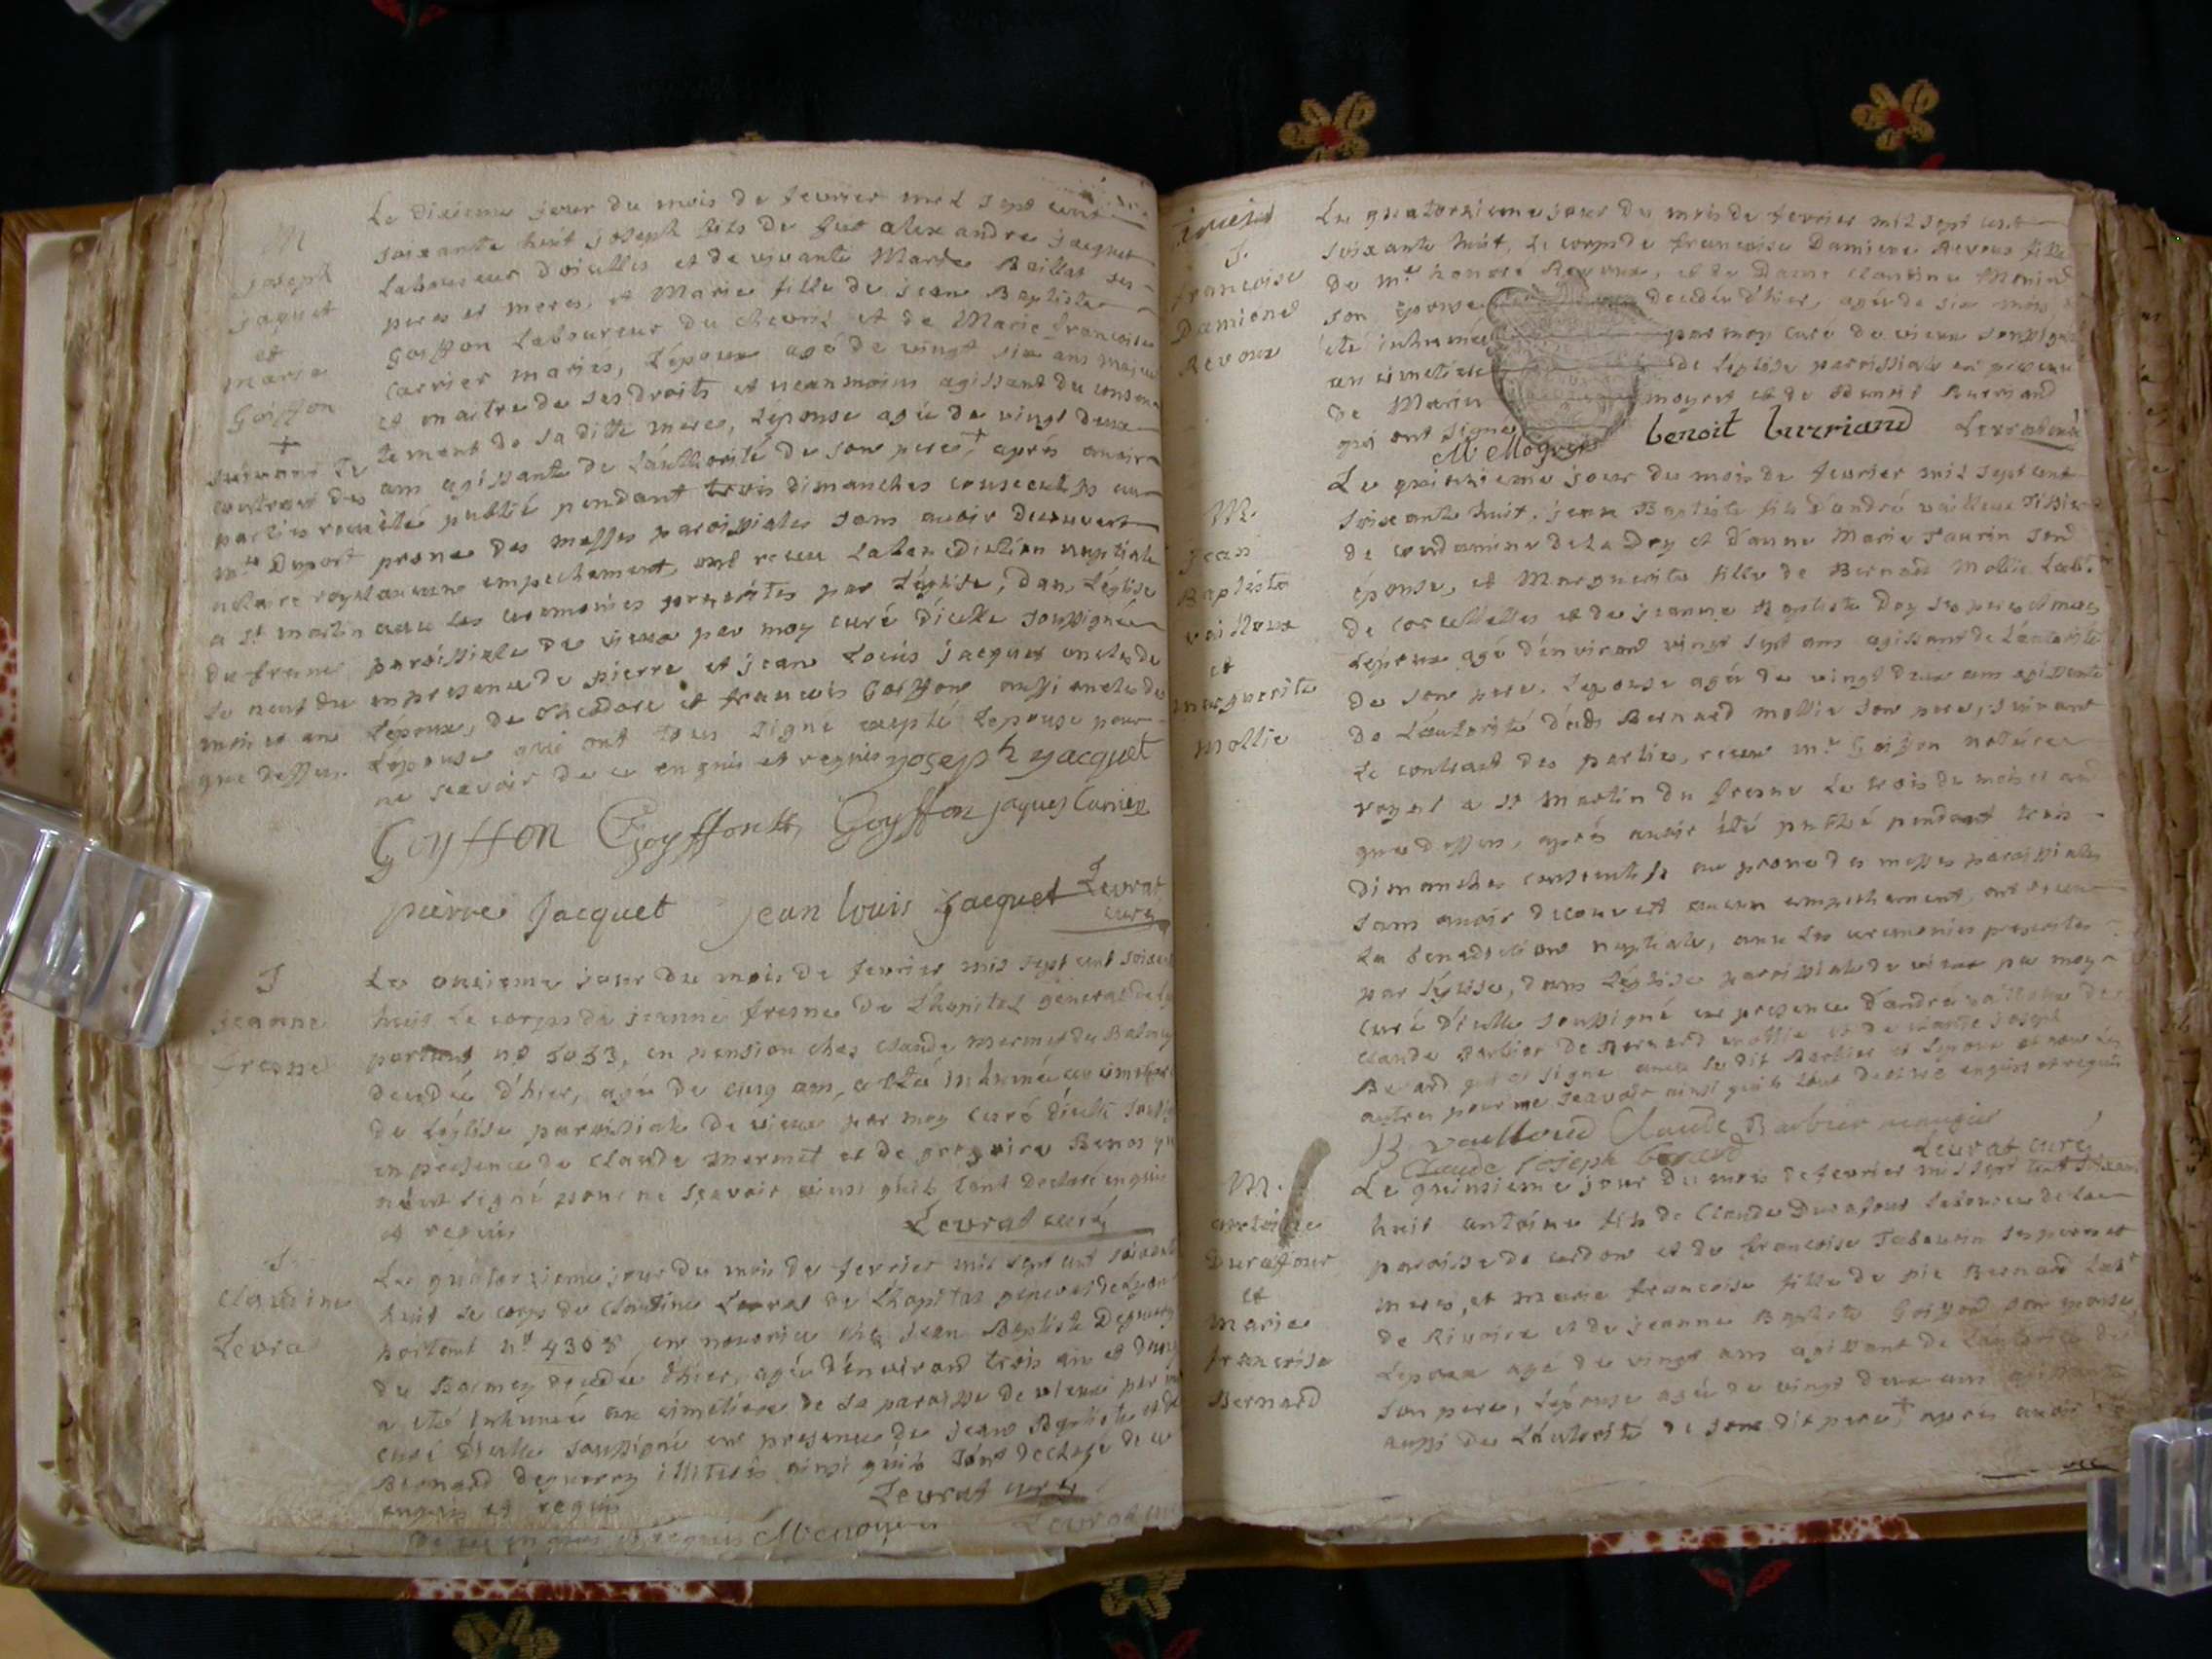 Le dixieme jour du mois de fevrier mil sept cent
soixante huit joseph fils de feu alexandre jacquet
Laboureur d'oiselles et de vivante Marie Baillat ses
peres et meres, et Marie fille de jean Baptiste
Goiffon Laboureur du et de Marie francoise
Carrier maries, L'epoux agé de vingt six ans majeur
et maitre de ses droits et neanmoins agissant du consen
tement de sa ditte mere, L'epouse agée de vingt deux
ans agissante de L'authorité de son pere + aprés avoir
été publié pendant trois dimanches consecutifs au
prone des messes paroissiales sans avoir decouvert
aucun empechement, ont receu La benediction nuptiale
avec les ceremonies prescrites par L'eglise, dans L'eglise
paroissiale de vieux par moy curé d'icelle soussigné
en presence de pierre et jean Louis jacquet oncles de
L'epoux, de theodore et francois Goiffon aussi oncles de
L'epouse qui ont tous signé excepté L'epouse pour
ne scavoir de ce enquis et requis yoseph yacquet
Goyffon Goyffon Goyffon jaques Carrier
pierre Jacquet jean louis Jacquet Levrat
curé
M
Joseph
jaquet
et
Marie
Goiffon
+
suivant le
contract des
parties receu
Mre Duport
notaire royal
a St martin
du frene
le neuf du
mois et an
que dessus
J
jeanne
fresne
Le onzieme jour du mois de fevrier mil sept cent soixante
huit Le corps de jeanne fresne de L'hopital general de
portant no 5033, en pension chez claude mermet du Balmey
decedée d'hier, agée de cinq ans, a été inhumée au cimetiere
de L'église paroissiale de vieux par moy curé d'icelle
en presence de claude mermet et de gregoire Benoz
n'ont signé pour ne sçavoir ainsi qu'ils l'ont declaré enquis
et requis
Levrat curé
J
Claudine
Levra
Le quatorzieme jour du mois de fevrier mil sept cent soixante
huit Le corps de Claudine Levrat de L'hopital general de Lyon
portant no 4308 en nourice chez jean Baptiste Deguerry
du Balmey decedée d'hier, agée d'environ trois ans et demy
a été inhumée au cimetiere de la paroisse de vieux par
curé d'icelle soussigné en presence de jean Baptiste et de
Bernard Deguerry illiterés ainsi qu'ils l'ont declaré de ce
enquis et requis
Levrat curé
J.
francoise
Damiene
Revoux
Le quatorzieme jour du mois de fevrier mil sept cent
soixante huit, Le corps de francoise Damiene Revoux fille
de Mre honoré Revoux, et de Dame Claudine
son epouse decedée d'hier, agée de six mois
été inhumée par moy curé de vieux soussigné
au cimetiere de L'eglise paroissiale en presence
de Marie et de benoit Burriand
qui ont signé
benoit burriand Levrat curé
M.
jean
Baptiste
vailloux
et
marguerite
Mollie
Le quinzieme jour du mois de fevrier mil sept cent
soixante huit, jean Baptiste fils d'andré vailloux
de condamine de La Doy et d'anne Marie Taurin son
épouse, et Marguerite fille de Bernard Mollie Labr.
de corcellettes et de jeanne Baptiste Doy ses pere et mere
L'epoux agé d'environ vingt sept ans agissant de L'autorité
de son pere, L'epouse agée de vingt deux ans agissante
de L'autorité dudt Bernard mollie son pere, suivant
Le contract des parties, receu Mre Goiffon notaire
royal a St Martin du fresne Le trois du mois et an
que dessus, aprés avoir été publié pendant trois
dimanches consecutifs au prone des messes paroissiales
sans avoir decouvert aucun empechement, ont receu
La benediction nuptiale, avec les ceremonies prescrites
par L'eglise, dans L'eglise paroissiale de vieux par moy
curé d'icelle soussigné en presence d'andré vailloux de
claude Barbier de Bernard mollie et de claude joseph
Berard qui a signé avec Ledit Barbier et L'epoux et non les
autres pour ne scavoir ainsi qu'ils l'ont declaré enquis et requis
B vailloud Claude Barbier
Claude joseph berard Levrat curé
M.
antoine
Durafour
et
Marie
francoise
Bernard
Le quinzieme jour du mois de fevrier mil sept cent soixante
huit antoine fils de Claude Durafour Laboureur de La
paroisse de cerdon et de francoise Tabourin ses pere et
meres, et Marie francoise fille de pie Bernard Labr
de Rivoire et de jeanne Baptiste Goiffon son epouse,
L'epoux agé de vingt ans agissant de L'autorité de
son pere, L'epouse agée de vingt deux ans agissante
aussi de L'autorité de son dit pere + aprés avoir